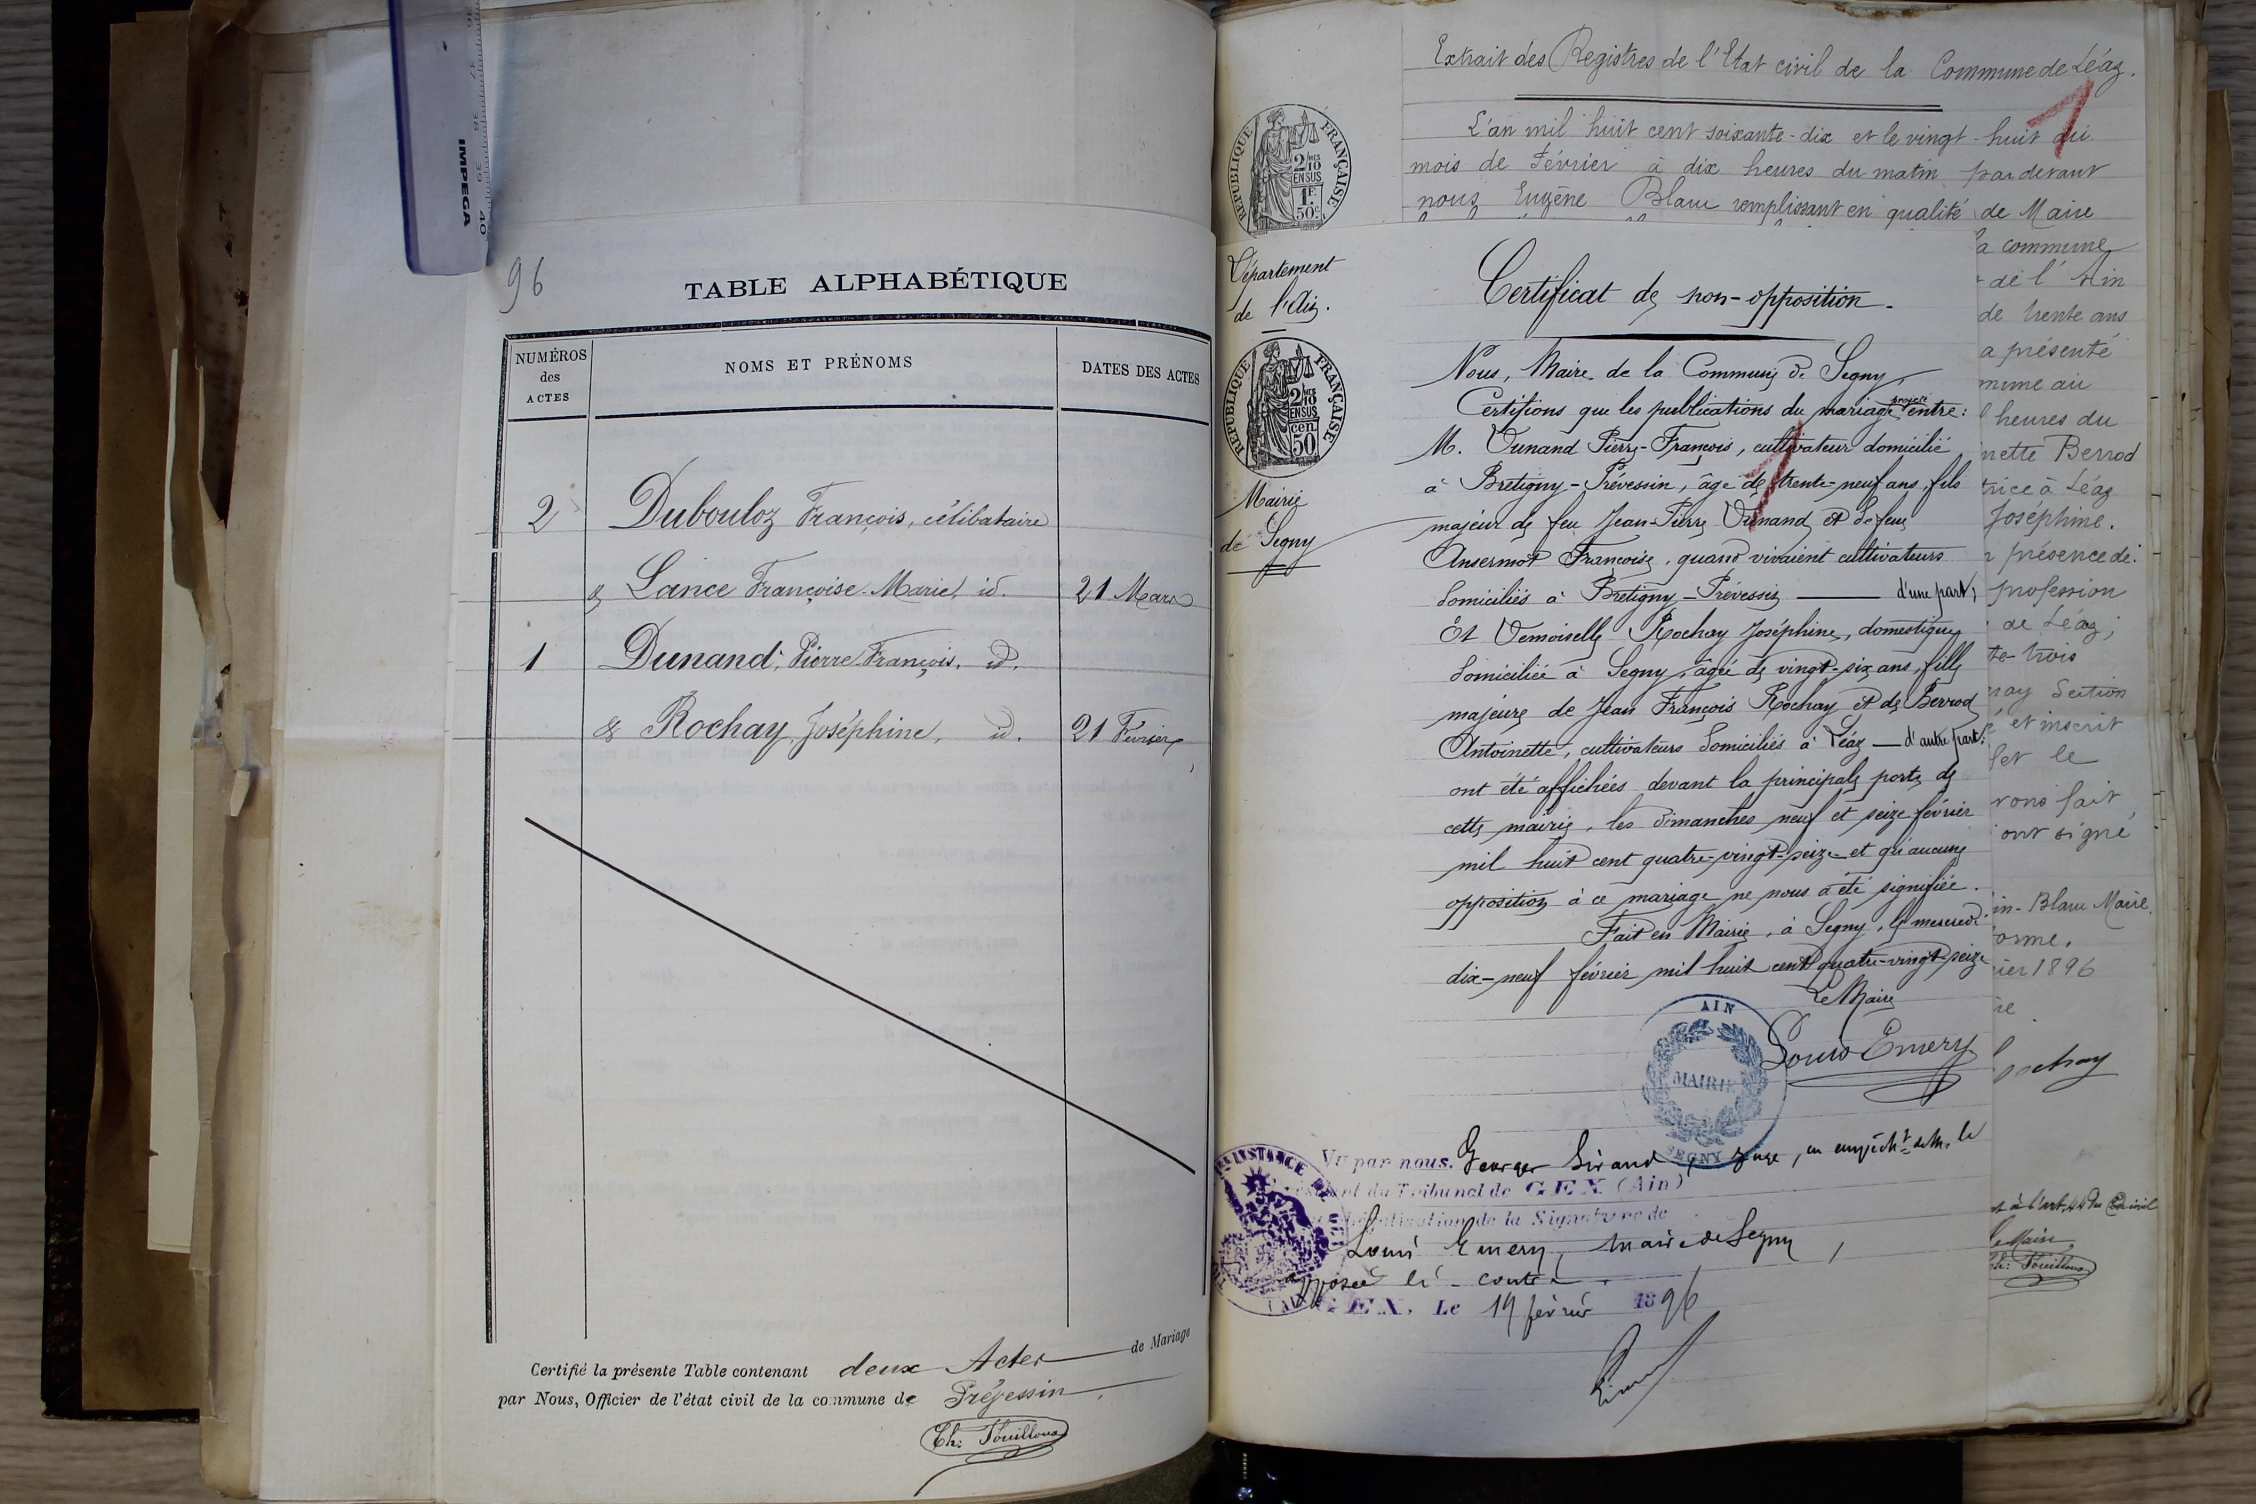 IMPEGA
96
TABLE ALPHABÉTIQUE
NUMÉROS
des
ACTES
NOMS ET PRÉNOMS
DATES DES ACTES
2 Dubouloz François, célibataire
& Lance Françoise-Marie, id. 21 Mars
1 Dunand, Pierre François, id.
& Rochay, Joséphine, id. 21 Février
Certifié la présente Table contenant deux Actes de Mariage
par Nous, Officier de l'état civil de la commune de Prévessin.
Extrait des Registres de l'Etat civil de la Commune de Léaz.
L'an mil huit cent soixante-dix et le vingt-huit du
mois de Février à dix heures du matin par devant
nous Eugène Blanc remplissant en qualité de Maire
1
RÉPUBLIQUE FRANÇAISE
2/10 EN SUS
1F. 50c
Département
de l'Ain.
RÉPUBLIQUE FRANÇAISE
2/10 EN SUS
50 cen
Mairie
de Segny
Certificat de non-opposition.
Nous, Maire de la Commune de Segny,
Certifions que les publications du mariage projeté entre:
M. Dunand Pierre-François, cultivateur domicilié
à Bretigny-Prévessin, âgé de trente-neuf ans, fils
majeur de feu Jean-Pierre Dunand et de feue
Ansermot Françoise, quand vivaient cultivateurs
domiciliés à Bretigny-Prévessin d'une part,
Et Demoiselle Rochay Joséphine, domestique
domiciliée à Segny, âgée de vingt-six ans, fille
majeure de Jean François Rochay et de Berrod
Antoinette, cultivateurs domiciliés à Léaz — d'autre part:
ont été affichées devant la principale porte de
cette mairie, les dimanches neuf et seize février
mil huit cent quatre-vingt-seize et qu'aucune
opposition à ce mariage ne nous a été signifiée.
Fait en Mairie, à Segny, le mercredi
dix-neuf février mil huit cent quatre-vingt-seize
Le Maire
Louis Emery
AIN
MAIRIE
SEGNY
Vu par nous, Georges Sirand, juge, en empêcht de M. le
du Tribunal de GEX (Ain)
de la Signature de
Louis Emery, maire de Segny,
apposée ci-contre.
GEX, Le 19 février 1896
a commune
de l'Ain
de trente ans
a présenté
heures du
Berrod
à Léaz
Joséphine.
présence de:
profession
de Léaz;
trois
Section
et inscrit
et le
fait
ont signé
Blanc Maire.
1896